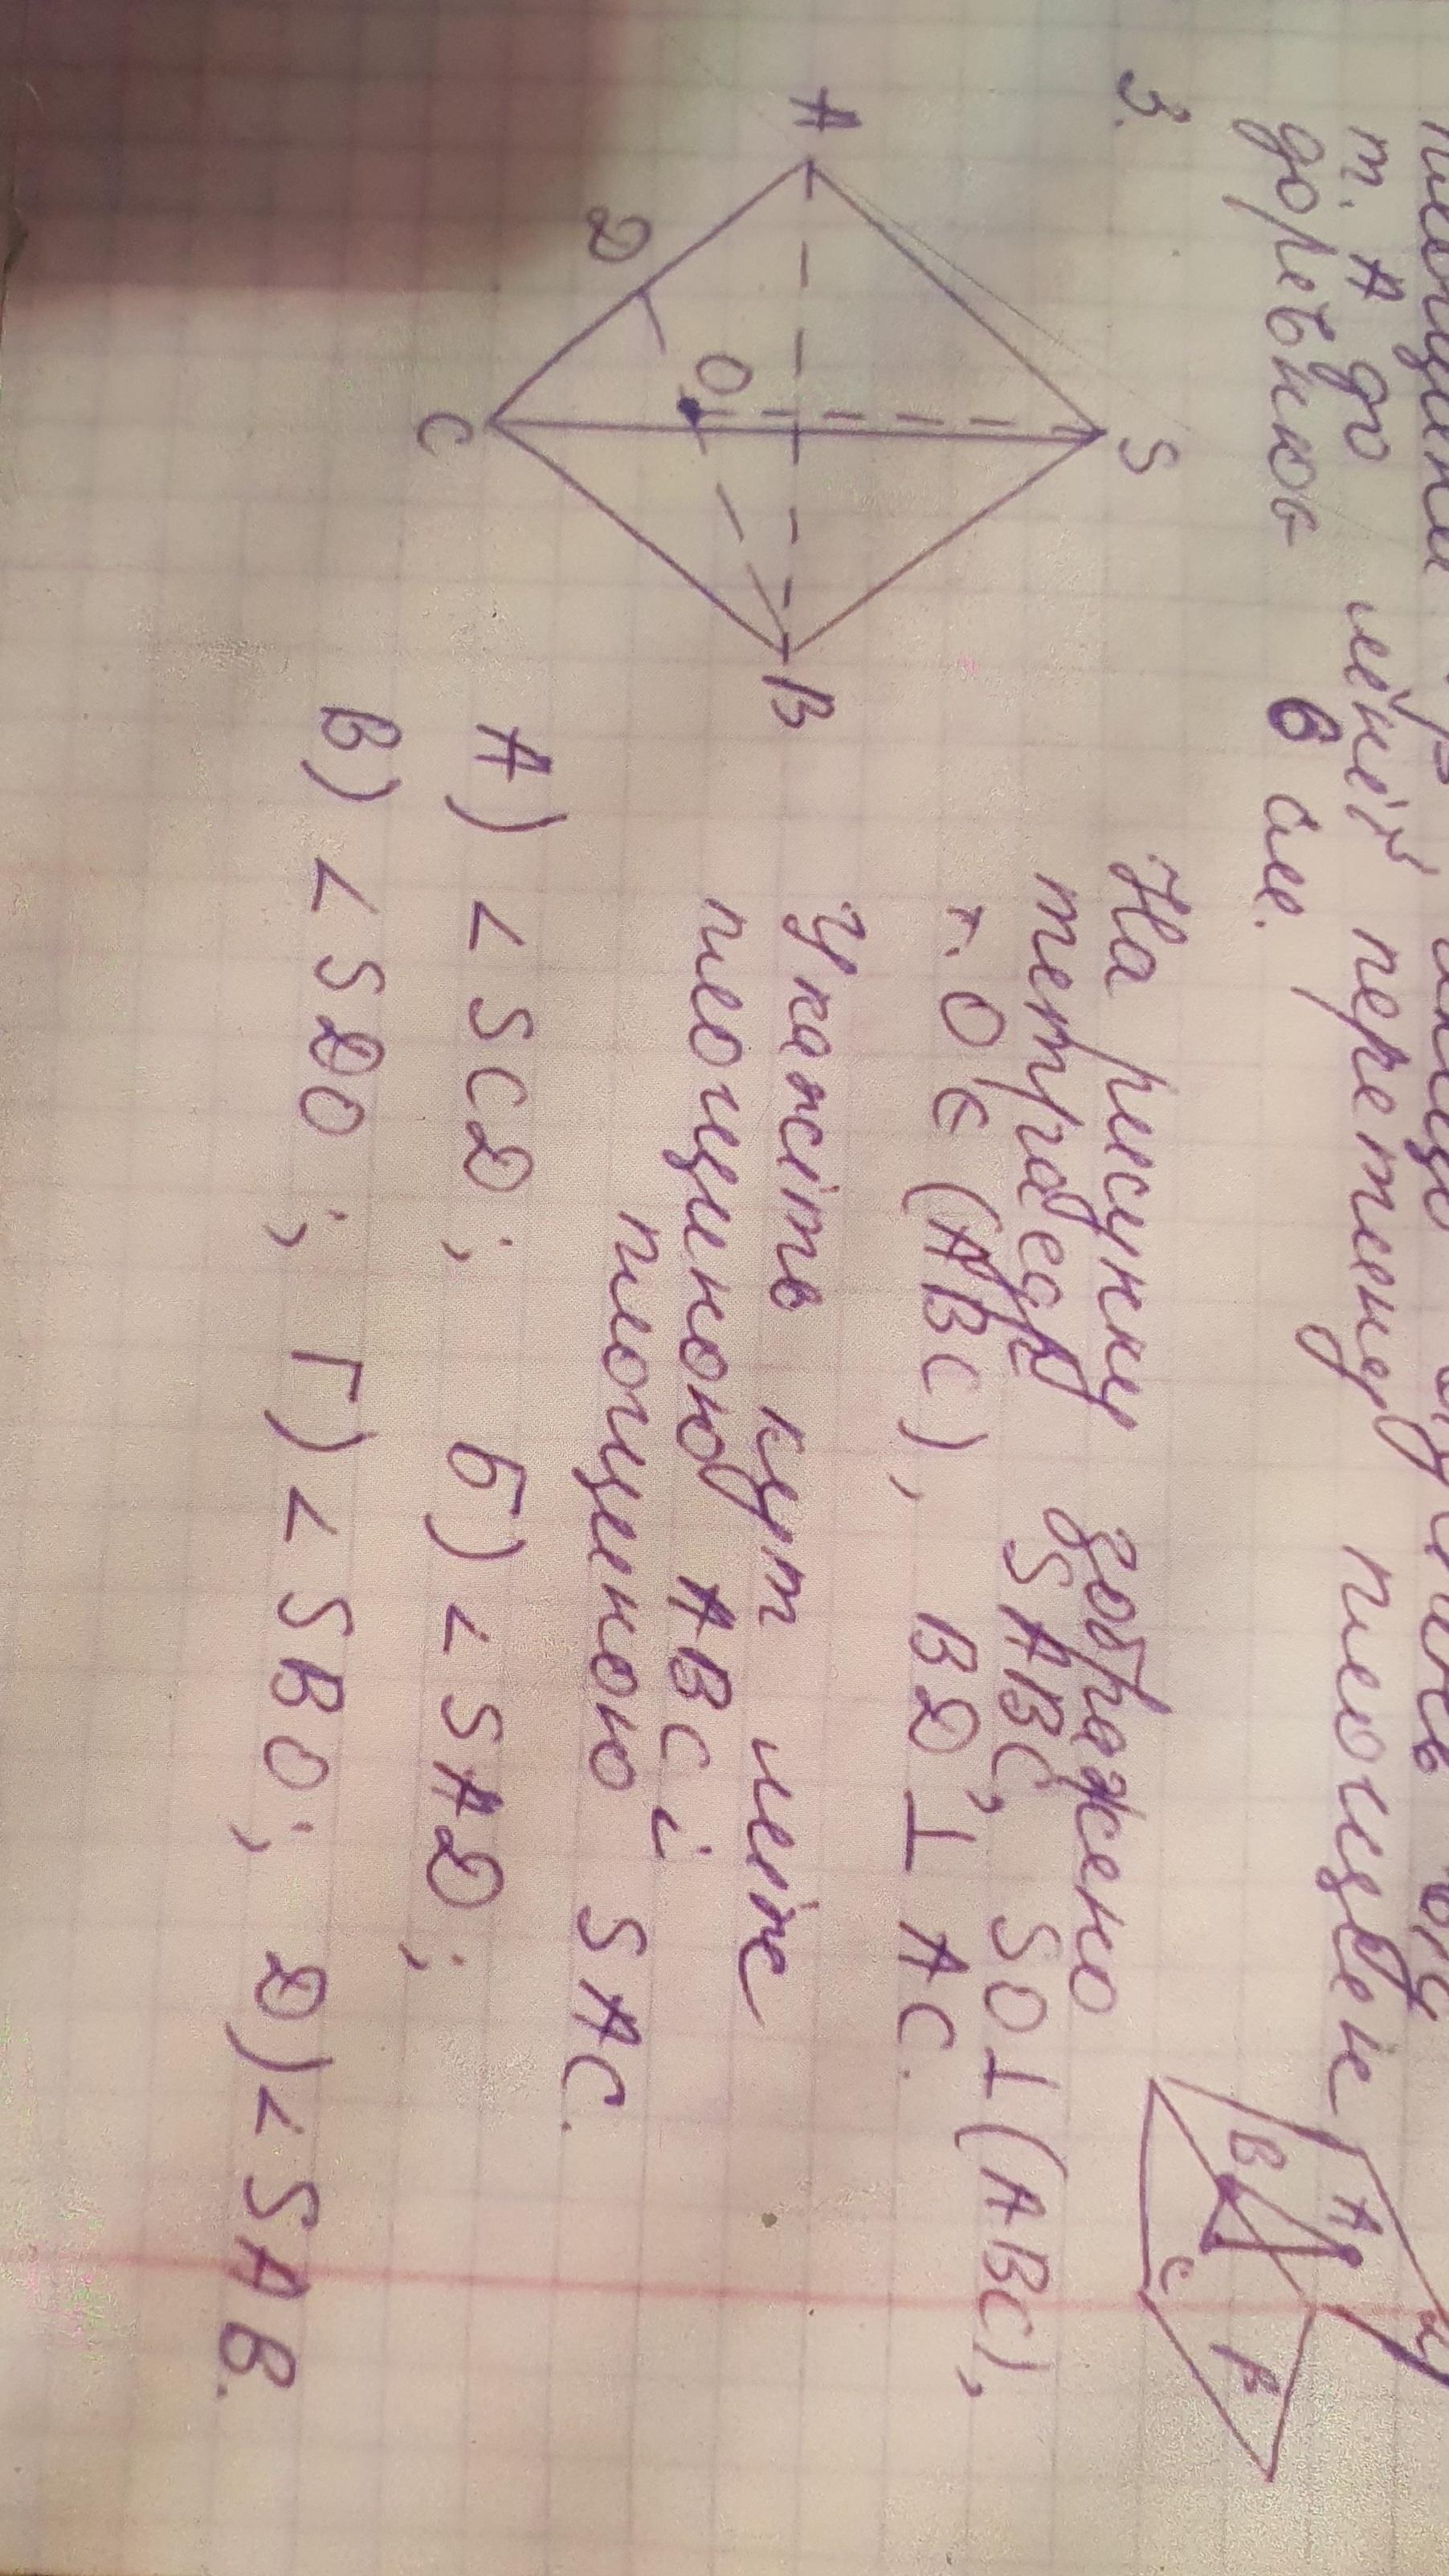 т. А до лінії перетину площин
дорівнює 6 см.
A
B
C
β
3.
S
A
D
O
B
C
На рисунку зображено
тетраедр SABC, SO⊥(ABC),
т. O ∈ (ABC), BD ⊥ AC.
Укажіть кут між
площиною ABC і
площиною SAC.
А) ∠SCD; Б) ∠SAD;
В) ∠SDO; Г) ∠SBO; Д) ∠SAB.